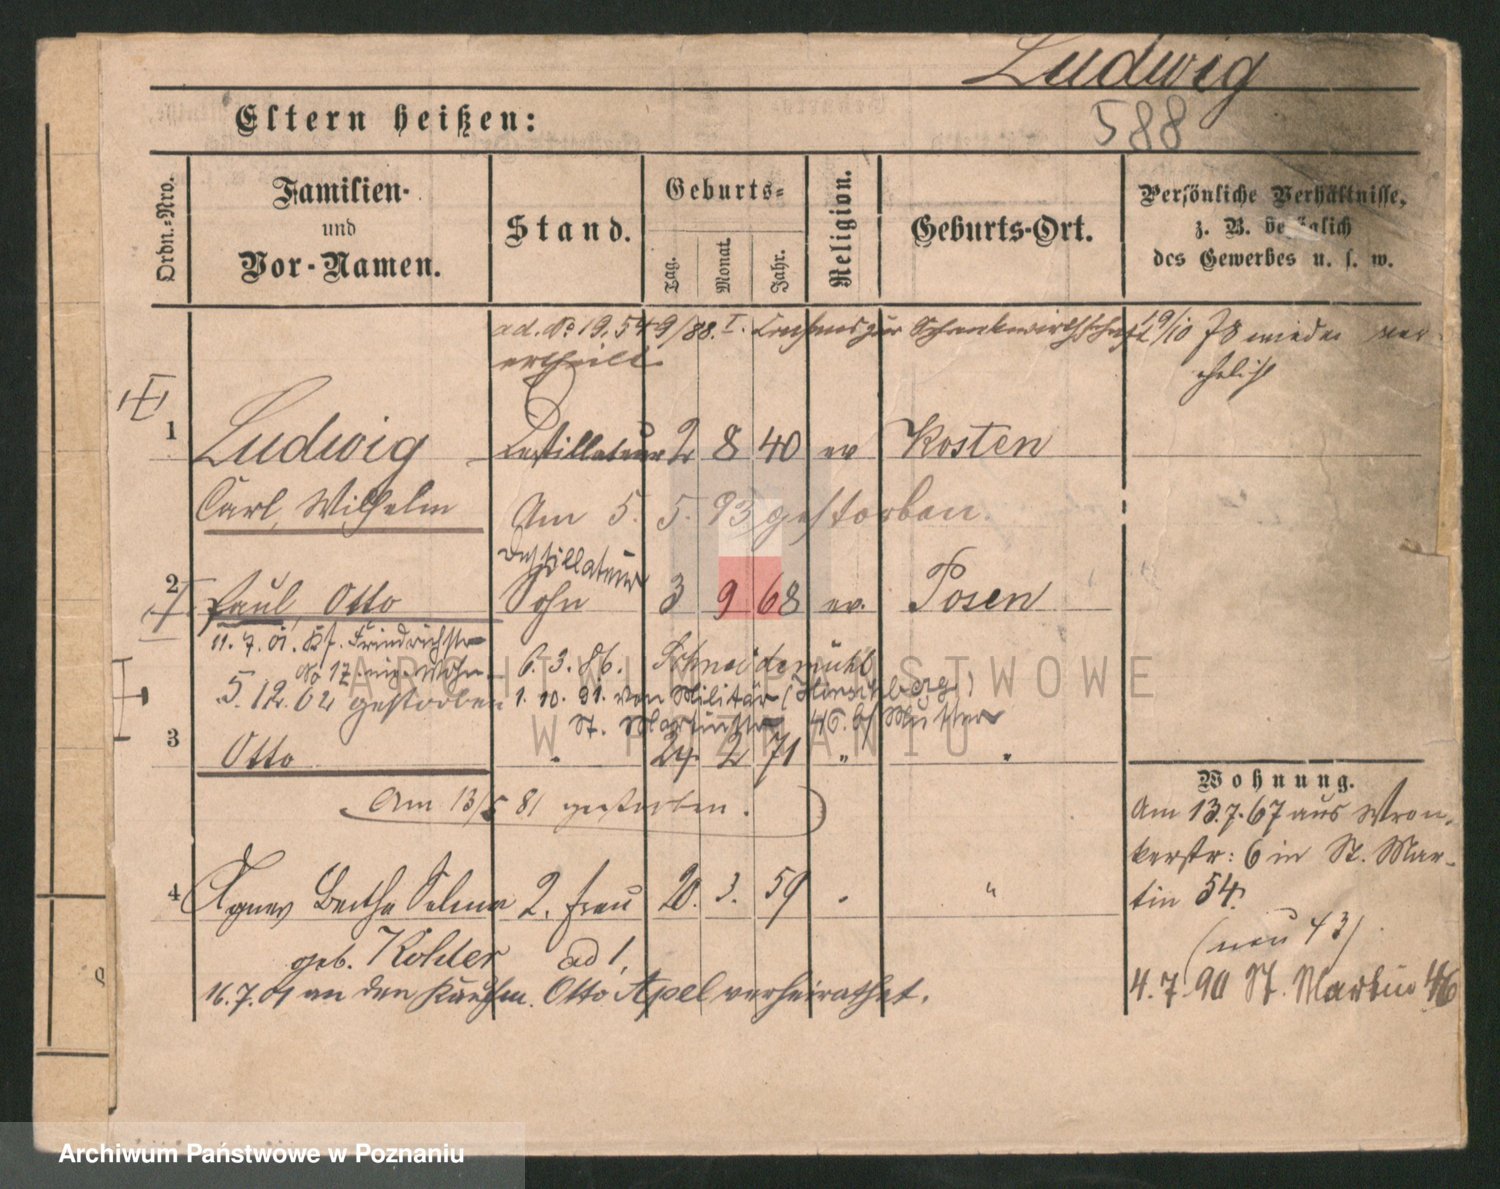 Ludwig
588
Eltern heißen:
Ordn.-Nro.
Familien-
und
Vor-Namen.
Stand.
Geburts-
Tag.
Monat.
Jahr.
Religion.
Geburts-Ort.
Persönliche Verhältnisse,
z. B. bezüglich
des Gewerbes u. s. w.
ad. No 19.549/88. I. Consens zur Schankwirthschaft
ertheilt
19/10 78 wieder ver-
ehelicht
1 Ludwig Destillateur 2 8 40 ev Kosten
Carl, Wilhelm Am 5. 5. 93 gestorben.
Destillateur
2 Paul, Otto Sohn 3 9 68 ev. Posen
11. 7. 01. Friedrichstr
No 12
6. 3. 86. Schneidemühl
5. 12. 02 gestorben
1. 10. 91. von Militär (Hirschberg)
St. Martinstr 46. b/ Mutter
3 Otto " 24. 2 71 " "
Am 13/5 81 gestorben.
4 Agnes Bertha Selma 2. Frau 20. 3. 59 " "
geb. Köhler ad 1,
16. 7. 01 an den Kaufm. Otto Apel verheirathet.
Wohnung.
Am 13.7.67 aus Wron-
kerstr: 6 in St. Mar-
tin 54.
(neu 43)
4. 7. 90 St. Martin 46
ARCHIWUM PAŃSTWOWE
W POZNANIU
Archiwum Państwowe w Poznaniu